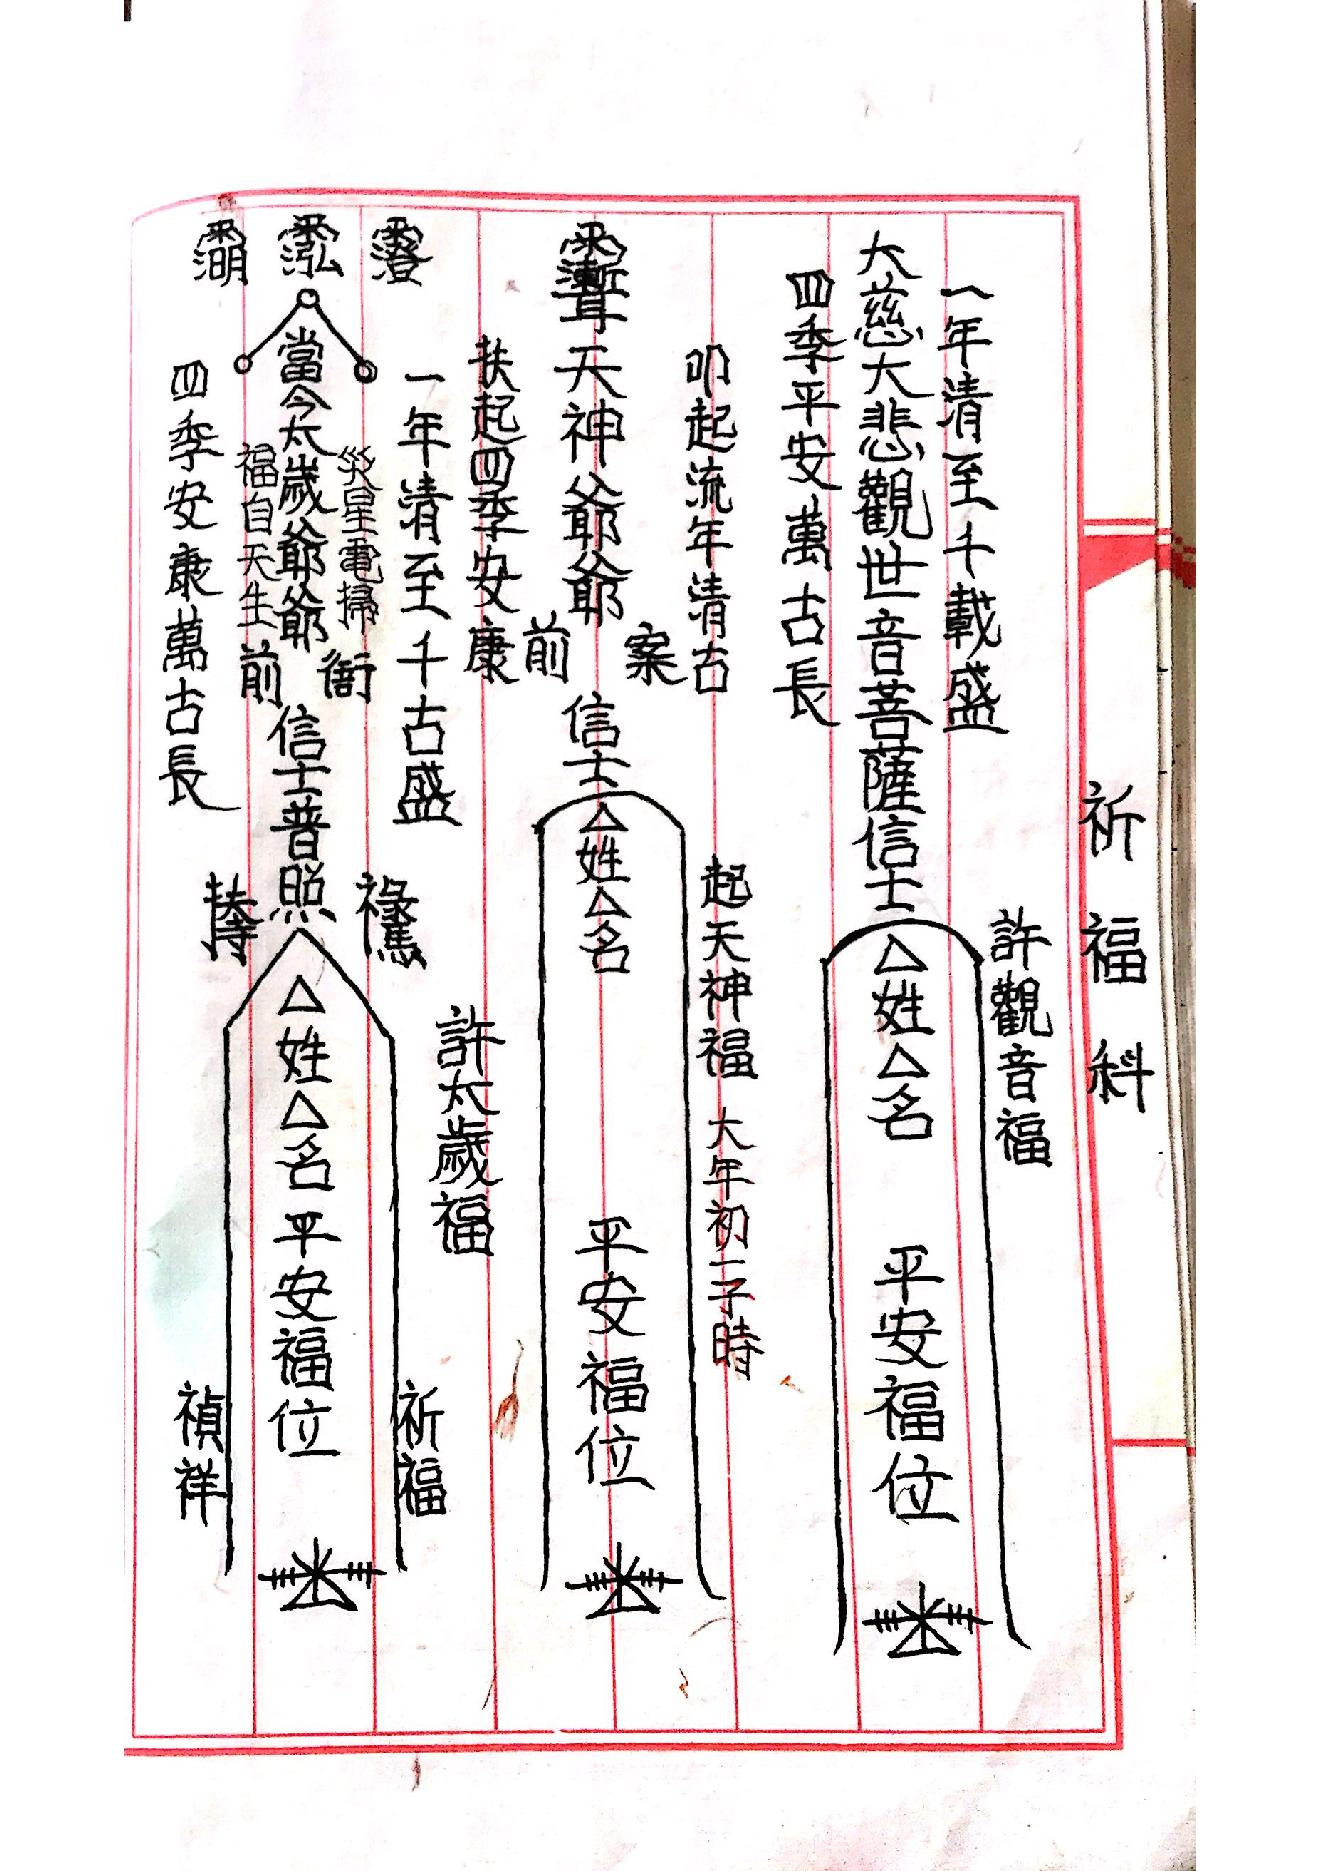 祈福科
許觀音福
一年清至千載盛
大慈大悲觀世音菩薩信士△姓△名 平安福位
四季平安萬古長
起天神福 大年初一子時
叩起流年清古
天神爺爺 案前 信士△姓△名 平安福位
扶起四季安康
許太歲福
一年清至千古盛
祈福
災星電掃
當今太歲爺爺 衙前 信士普照△姓△名平安福位
福自天生
四季安康萬古長
禎祥